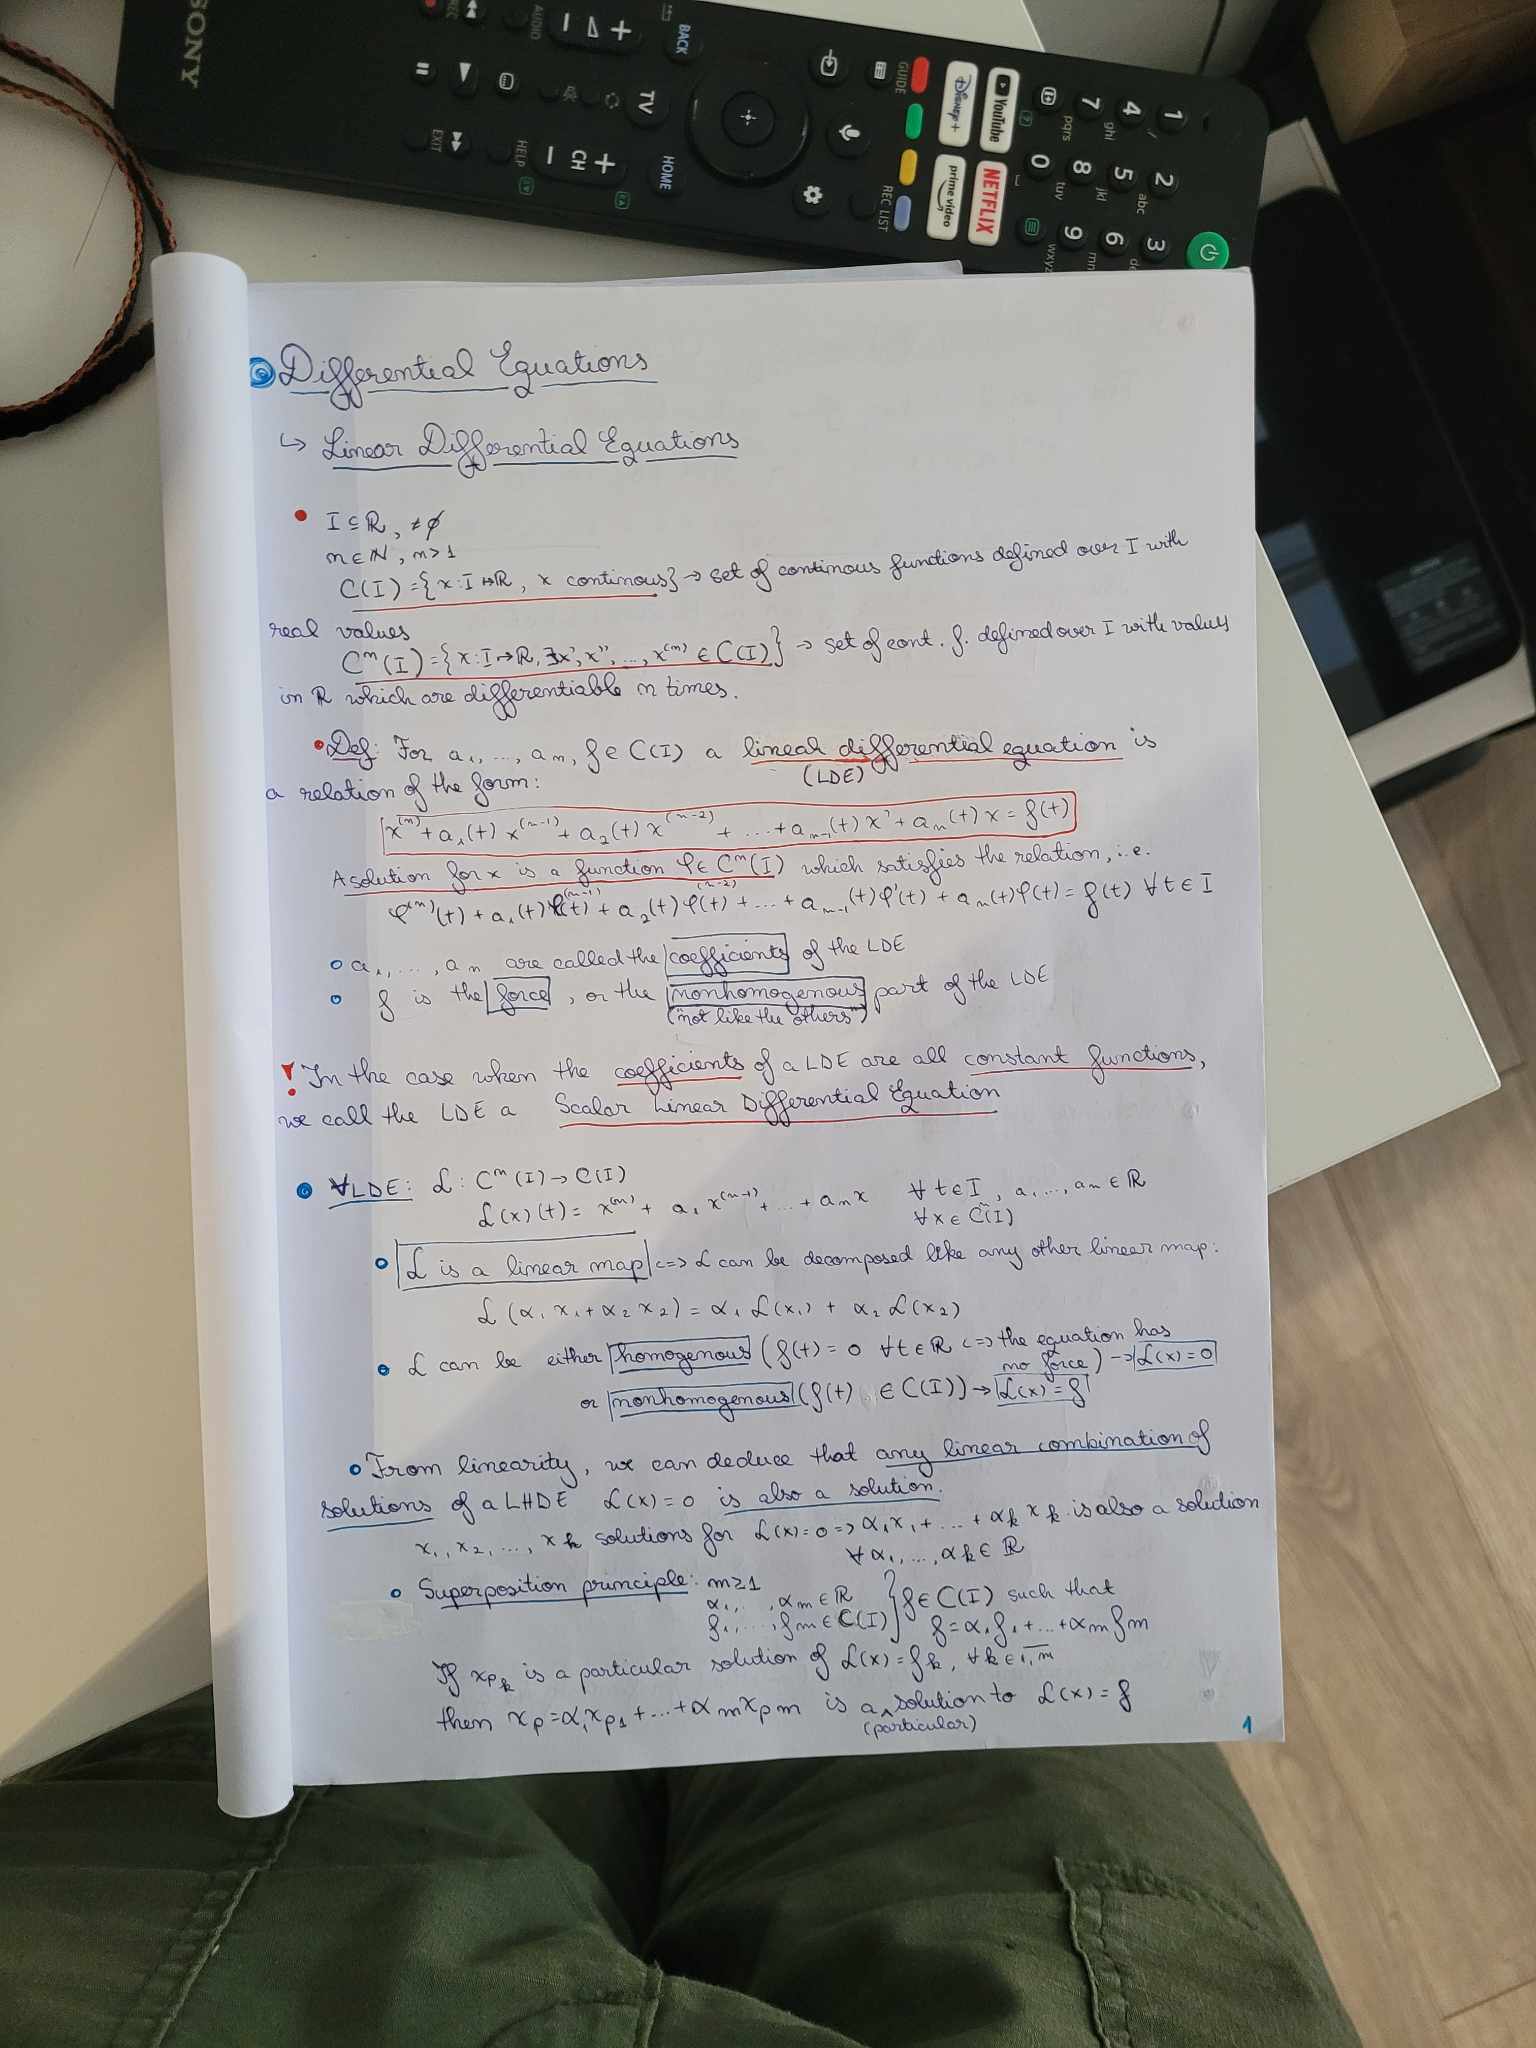 SONY
REC
AUDIO
+
−
BACK
TV
HOME
+
CH
−
HELP
EXIT
GUIDE
REC LIST
DISNEY+
YouTube
prime video
NETFLIX
1
2 abc
3
4 ghi
5 jkl
6
7 pqrs
8 tuv
9 wxyz
0
Differential Equations
↳ Linear Differential Equations
• I ⊆ ℝ, ≠ ∅
n ∈ ℕ, n > 1
C(I) = { x: I ↦ ℝ, x continous} → set of continous functions defined over I with
real values
Cⁿ(I) = { x: I → ℝ, ∃x', x'', ..., x⁽ⁿ⁾ ∈ C(I)} → set of cont. f. defined over I with values
in ℝ which are differentiable n times.
• Def: For a₁, ..., aₙ, f ∈ C(I) a linear differential equation is
(LDE)
a relation of the form:
x⁽ⁿ⁾ + a₁(t) x⁽ⁿ⁻¹⁾ + a₂(t) x⁽ⁿ⁻²⁾ + ... + aₙ₋₁(t) x' + aₙ(t) x = f(t)
A solution for x is a function φ ∈ Cⁿ(I) which satisfies the relation, i.e.
φ⁽ⁿ⁾(t) + a₁(t) φ⁽ⁿ⁻¹⁾(t) + a₂(t) φ⁽ⁿ⁻²⁾(t) + ... + aₙ₋₁(t) φ'(t) + aₙ(t) φ(t) = f(t) ∀ t ∈ I
o a₁, ..., aₙ are called the coefficients of the LDE
o f is the force, or the nonhomogenous part of the LDE
("not like the others")
! In the case when the coefficients of a LDE are all constant functions,
we call the LDE a Scalar Linear Differential Equation
• ∀LDE: ℒ: Cⁿ(I) → C(I)
ℒ(x)(t) = x⁽ⁿ⁾ + a₁ x⁽ⁿ⁻¹⁾ + ... + aₙ x ∀ t ∈ I, a₁ ..., aₙ ∈ ℝ
∀ x ∈ Cⁿ(I)
o ℒ is a linear map <=> ℒ can be decomposed like any other linear map:
ℒ(α₁ x₁ + α₂ x₂) = α₁ ℒ(x₁) + α₂ ℒ(x₂)
o ℒ can be either homogenous (f(t) = 0 ∀ t ∈ ℝ <=> the equation has
no force) → ℒ(x) = 0
or nonhomogenous (f(t) ∈ C(I)) → ℒ(x) = f
o From linearity, we can deduce that any linear combination of
solutions of a LHDE ℒ(x) = 0 is also a solution.
x₁, x₂, ..., xk solutions for ℒ(x) = 0 => α₁x₁ + ... + αk xk is also a solution
∀ α₁, ..., αk ∈ ℝ
o Superposition principle: m ≥ 1
α₁, ..., αm ∈ ℝ } f ∈ C(I) such that
f₁, ..., fm ∈ C(I) f = α₁f₁ + ... + αm fm
If xpₖ is a particular solution of ℒ(x) = fk, ∀ k ∈ 1, m
then xp = α₁xp₁ + ... + αm xpm is a solution to ℒ(x) = f
(particular)
1